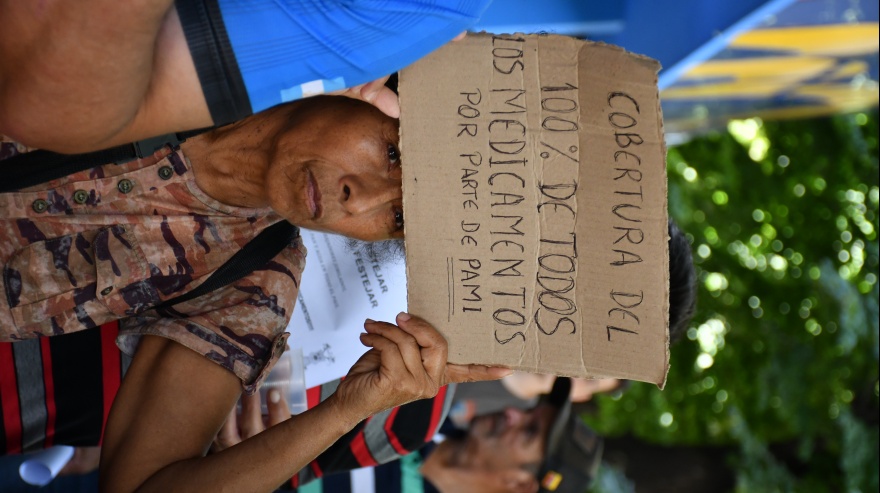 COBERTURA DEL
100% DE TODOS
LOS MEDICAMENTOS
POR PARTE DE PAMI
FESTEJAR
FESTEJAR